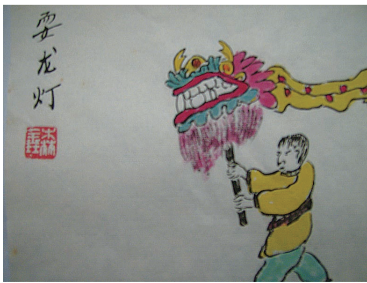 耍龙灯